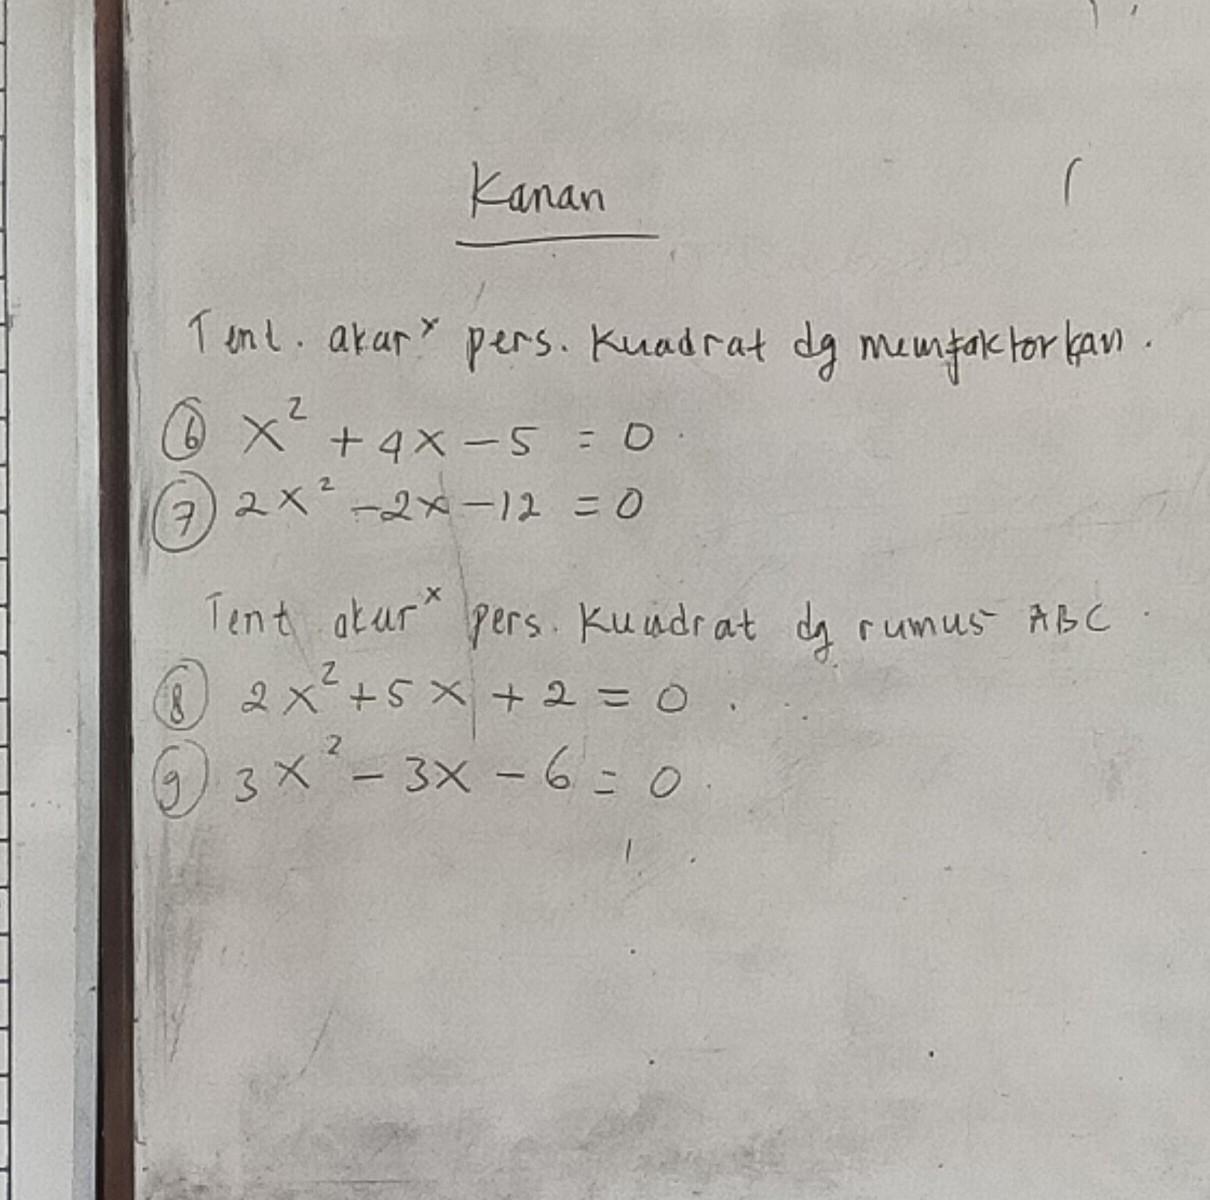 Kanan
Tent. akarˣ pers. Kuadrat dg memfaktorkan.
⑥ x² + 4x - 5 = 0
⑦ 2x² - 2x - 12 = 0
Tent akarˣ pers. Kuadrat dg rumus ABC
⑧ 2x² + 5x + 2 = 0.
⑨ 3x² - 3x - 6 = 0.